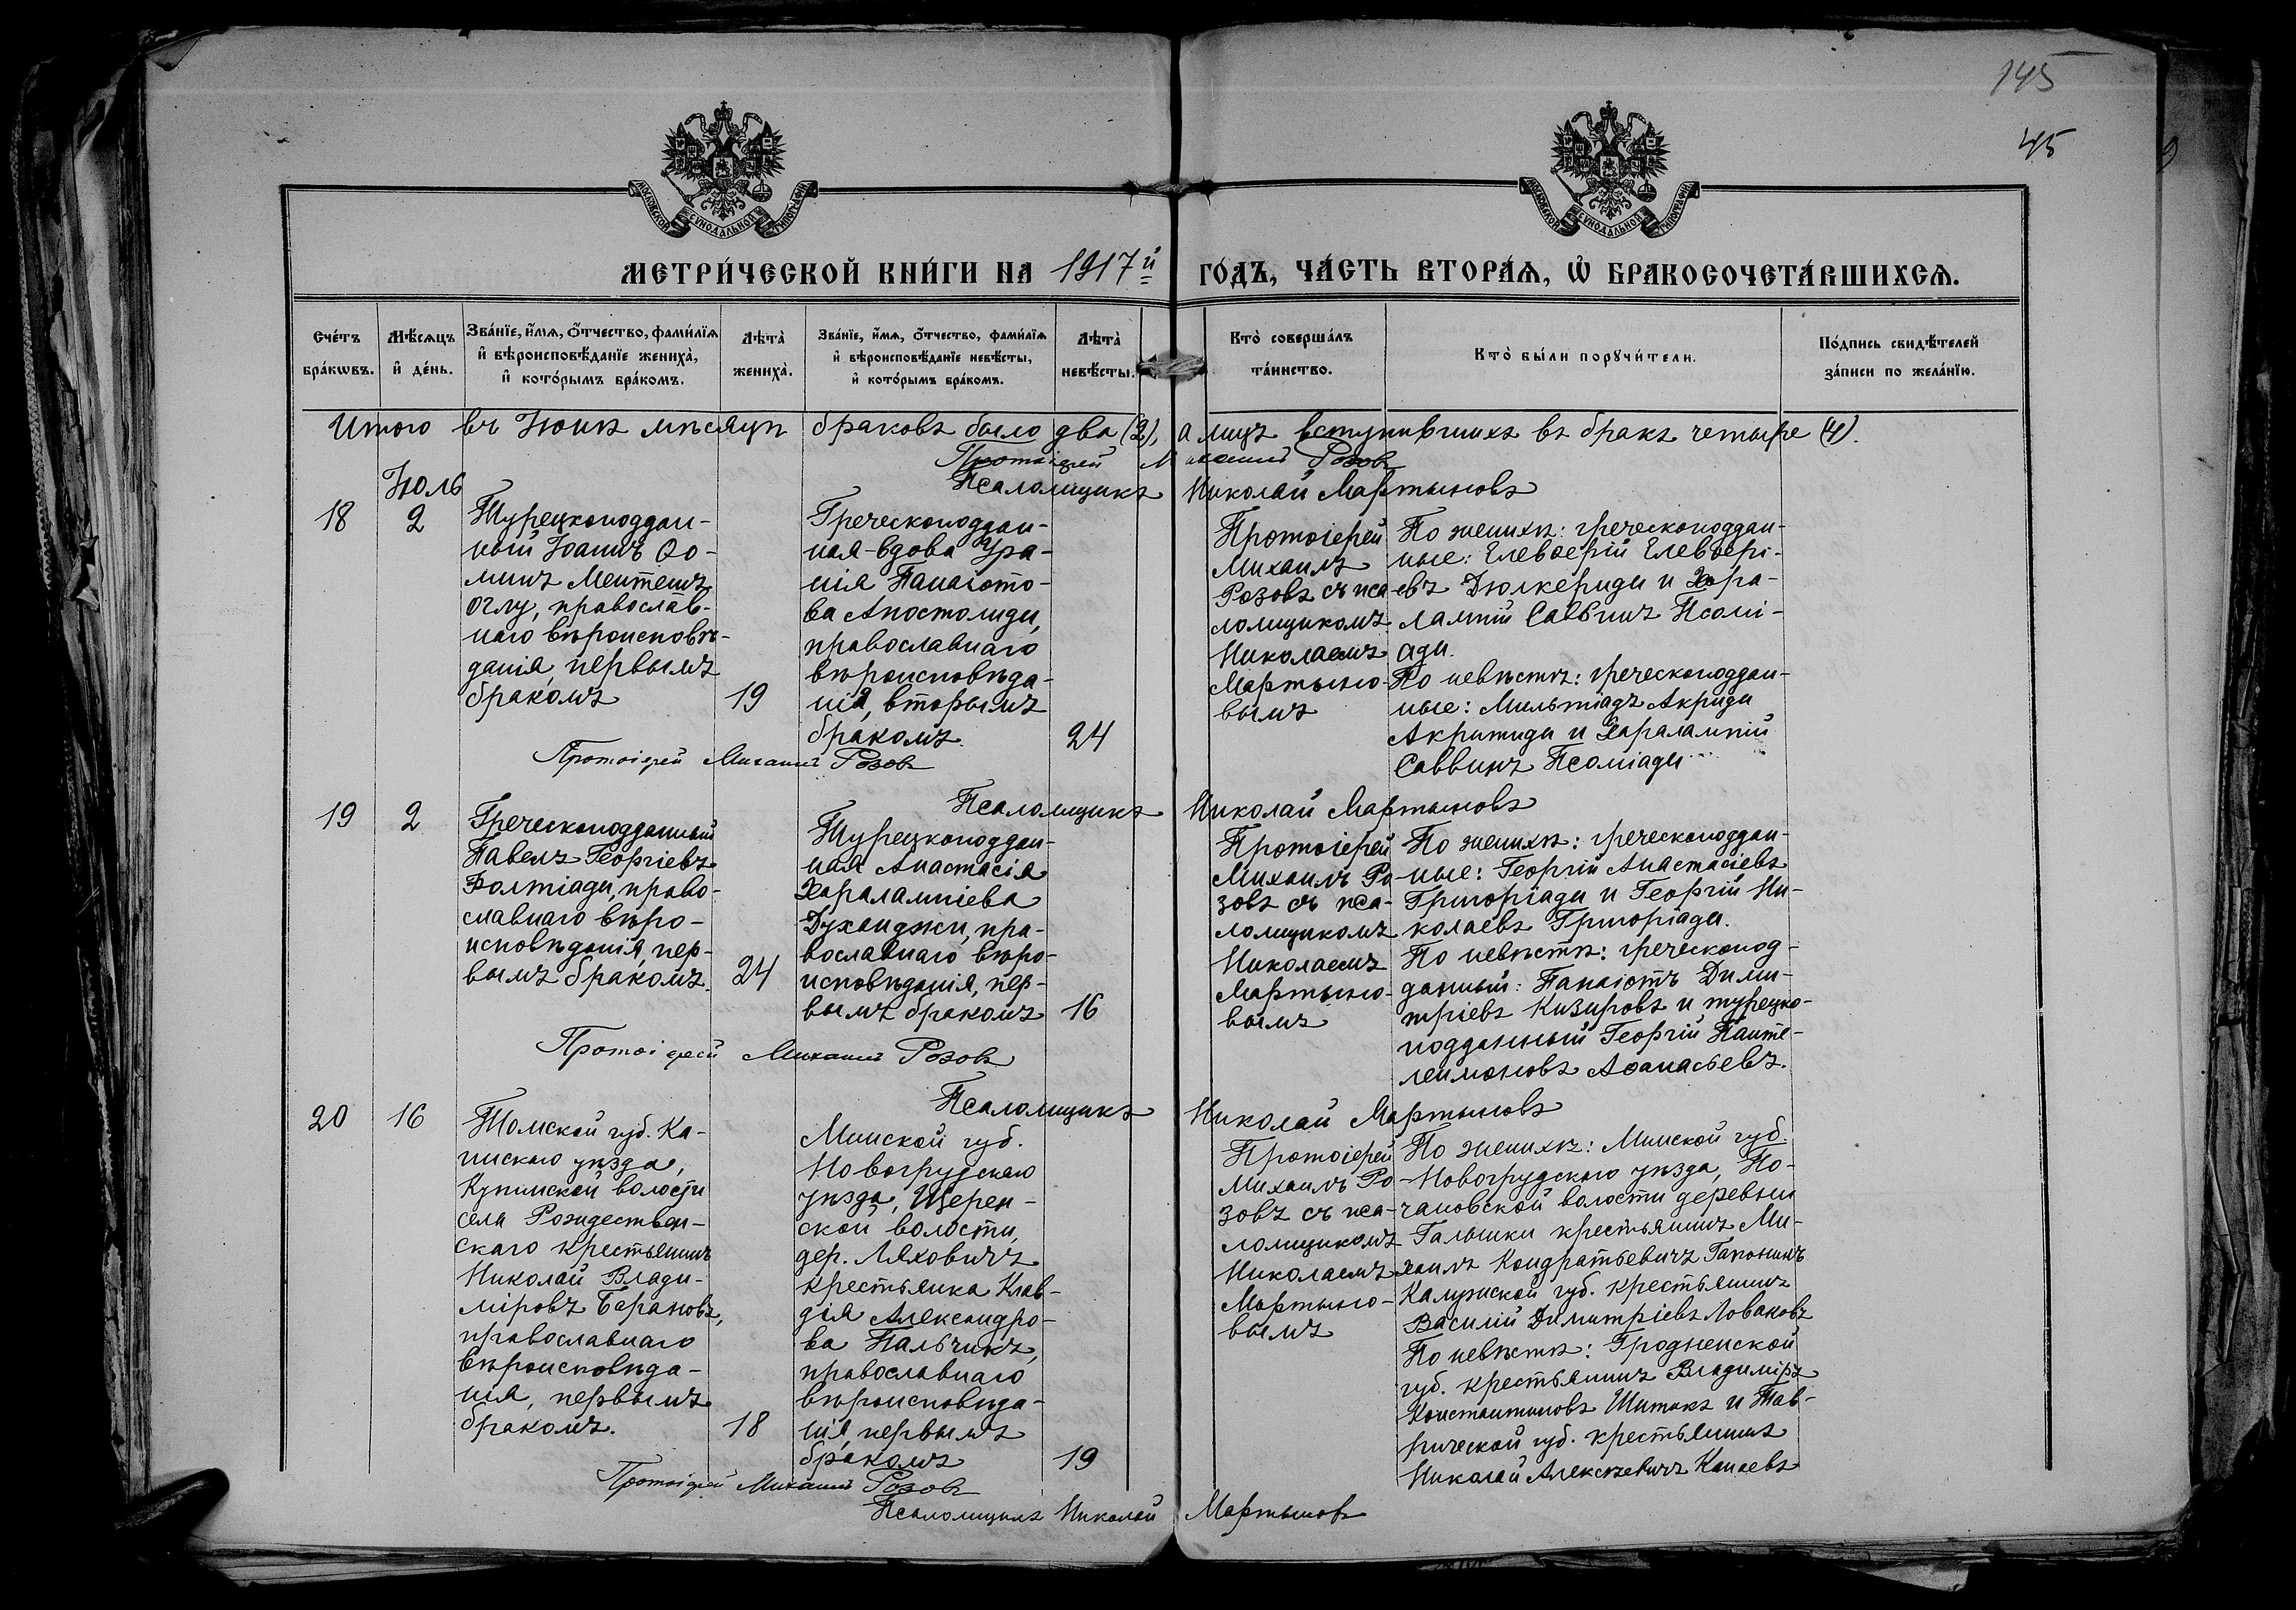 145
45
МОСКОВСКОЙ СѴНОДАЛЬНОЙ ТИПОГРАФІИ
МОСКОВСКОЙ СѴНОДАЛЬНОЙ ТИПОГРАФІИ
МЕТРИ́ЧЕСКОЙ КНИ́ГИ НА 1917й ГО́ДЪ, ЧА́СТЬ ВТОРА́Ѧ, Ѡ҆ БРАКОСОЧЕТА́ВШИХСѦ.
Сче́тъ бра́кѡвъ.
Мѣ́сѧцъ и҆ де́нь.
Зва́нїе, и҆́мѧ, ѻ҆́тчество, фами́лїѧ
и҆ вѣроисповѣ́данїе жениха̀,
и҆ кото́рымъ бра́комъ.
Лѣта̀ жениха̀.
Зва́нїе, и҆́мѧ, ѻ҆́тчество, фами́лїѧ
и҆ вѣроисповѣ́данїе невѣ́сты,
и҆ кото́рымъ бра́комъ.
Лѣта̀ невѣ́сты.
Кто̀ соверша́лъ
та́инство.
Кто̀ бы́ли порꙋчи́тели.
По́дпись свидѣ́телей
за́писи по жела́нїю.
Итого въ Іюнѣ мѣсяцѣ браковъ было два (2), а лицъ вступившихъ въ бракъ четыре (4).
Протоіерей Михаилъ Розовъ
Псаломщикъ Николай Мартыновъ
Іюль
18
2
Турецкоподдан-
ный Іоаннъ Ѳо-
минъ Ментешъ
Оглу, православ-
наго вѣроисповѣ-
данія, первымъ
бракомъ
19
Греческоподдан-
ная-вдова Ура-
нія Панаіото-
ва Апостолиди,
православнаго
вѣроисповѣда-
нія, вторымъ
бракомъ.
24
Протоіерей
Михаилъ
Розовъ съ пса-
ломщикомъ
Николаемъ
Мартыно-
вымъ
По женихѣ: греческоподдан-
ные: Елевѳерій Елевѳері-
евъ Дюлкериди и Хара-
лампій Саввинъ Псомі-
ади.
По невѣстѣ: греческоподдан-
ные: Мильтіадъ Акриди
Акритиди и Харалампій
Саввинъ Псоміади
Протоіерей Михаилъ Розовъ
Псаломщикъ Николай Мартыновъ
19
2
Греческоподданный
Павелъ Георгіевъ
Фолтіади, право-
славнаго вѣро-
исповѣданія, пер-
вымъ бракомъ.
24
Турецкоподдан-
ная Анастасія
Харалампіева
Духанджи, пра-
вославнаго вѣро-
исповѣданія, пер-
вымъ бракомъ
16
Протоіерей
Михаилъ Ро-
зовъ съ пса-
ломщикомъ
Николаемъ
Мартыно-
вымъ
По женихѣ: греческоподдан-
ные: Георгій Анастасіевъ
Григоріади и Георгій Ни-
колаевъ Григоріади.
По невѣстѣ: греческопод-
данный: Панаіотъ Дими-
тріевъ Кизировъ и турецко-
подданный Георгій Панте-
леимоновъ Аѳанасьевъ.
Протоіерей Михаилъ Розовъ
Псаломщикъ Николай Мартыновъ
20
16
Томской губ. Ка-
инскаго уѣзда,
Купинской волости
села Рождествен-
скаго крестьянинъ
Николай Влади-
міровъ Барановъ,
православнаго
вѣроисповѣда-
нія, первымъ
бракомъ.
18
Минской губ.
Новогрудскаго
уѣзда, Щерен-
ской волости,
дер. Ляховичъ
крестьянка Клав-
дія Александро-
ва Пальчикъ,
православнаго
вѣроисповѣда-
нія, первымъ
бракомъ
19
Протоіерей
Михаилъ Ро-
зовъ съ пса-
ломщикомъ
Николаемъ
Мартыно-
вымъ
По женихѣ: Минской губ.
Новогрудскаго уѣзда, По-
чаповской волости деревни
Галышки крестьянинъ Ми-
хаилъ Кондратьевичъ Гапонинъ
Калужской губ. крестьянинъ
Василій Димитріевъ Ловаковъ
По невѣстѣ: Гродненской
губ. крестьянинъ Владиміръ
Константиновъ Шитикъ и Тав-
рической губ. крестьянинъ
Николай Алексѣевичъ Канаевъ
Протоіерей Михаилъ Розовъ
Псаломщикъ Николай Мартыновъ